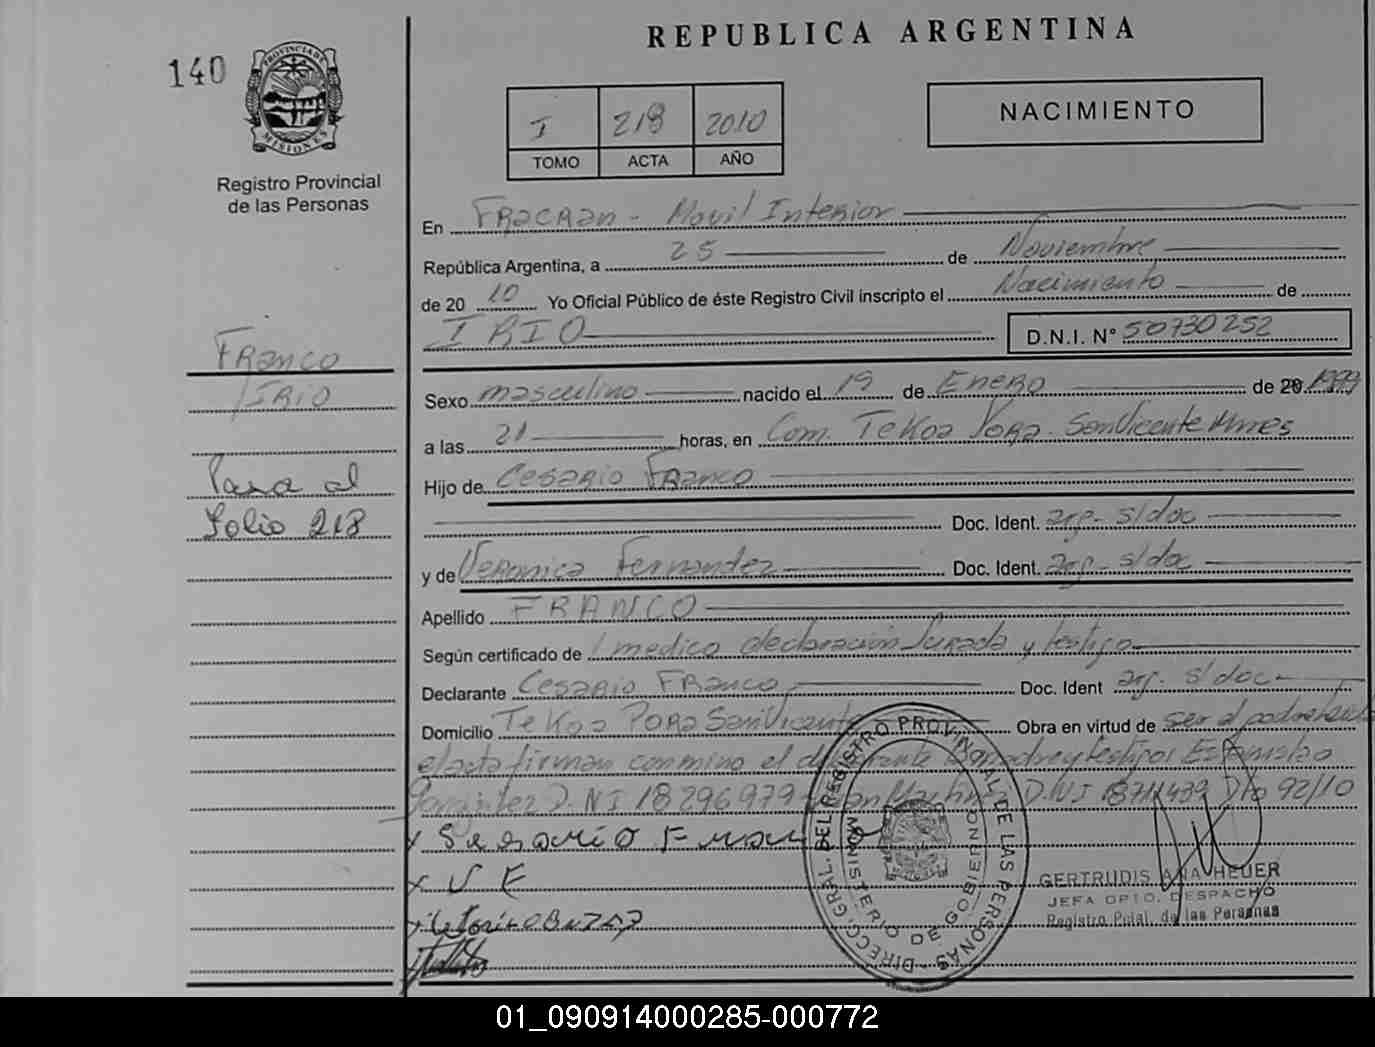 REPUBLICA ARGENTINA
140
PROVINCIA DE
MISIONES
Registro Provincial
de las Personas
I 218 2010
TOMO ACTA AÑO
NACIMIENTO
En Fracran - Movil Interior
República Argentina, a 25 de Noviembre
de 2010 Yo Oficial Público de éste Registro Civil inscripto el Nacimiento de
IRIO D.N.I. N° 50730252
Franco
Irio
Pasa al
folio 218
Sexo masculino nacido el 19 de Enero de 20 1999
a las 21 horas, en Com. Tekoa Pora. San Vicente Mnes
Hijo de Cesario Franco
Doc. Ident. arg- s/doc
y de Veronica Fernandez Doc. Ident. arg- s/doc
Apellido FRANCO
Según certificado de 1 medico declaración Jurada y testigo
Declarante Cesario Franco Doc. Ident arg. s/doc-
Domicilio Tekoa Pora San Vicente Obra en virtud de ser el padre
el acta firman conmino el padre y testigos Estanislao
D.NI 18296979 D.NI 18711439 Dto 92/10
x Sesario Fran
x V F
GERTRUDIS ANA HEUER
JEFA DPTO. DESPACHO
Registro Pcial. de las Personas
DIRECC. GRAL. DEL REGISTRO PROVINCIAL DE LAS PERSONAS
MINISTERIO DE GOBIERNO
01_090914000285-000772